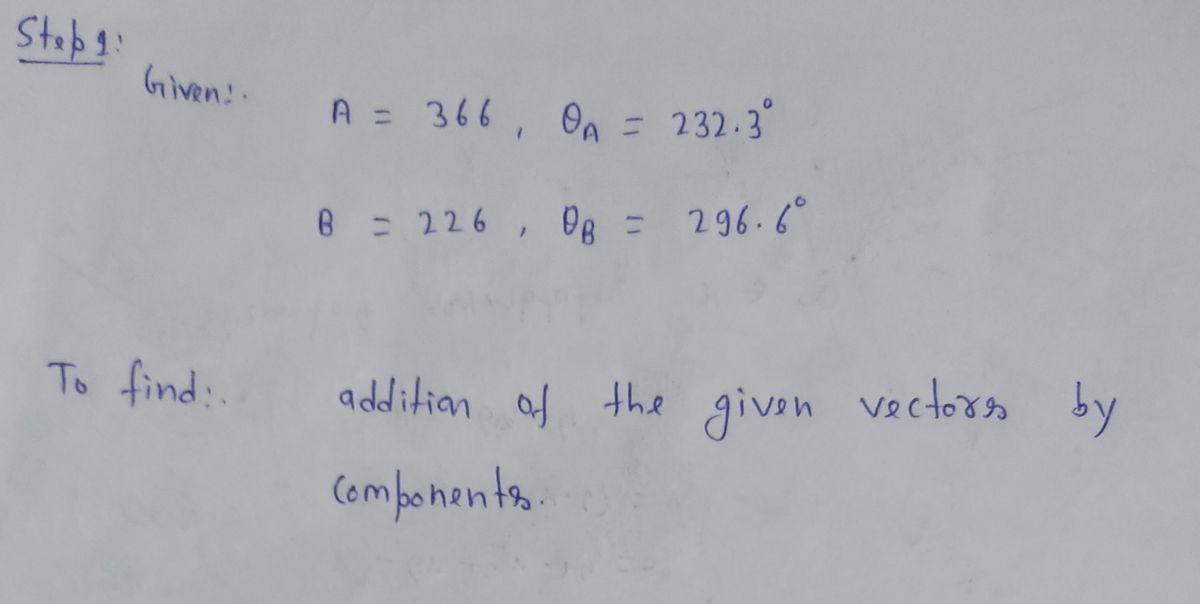 Step 1:
Given:.
A = 366, θA = 232.3°
B = 226, θB = 296.6°
To find:. addition of the given vectors by
components.